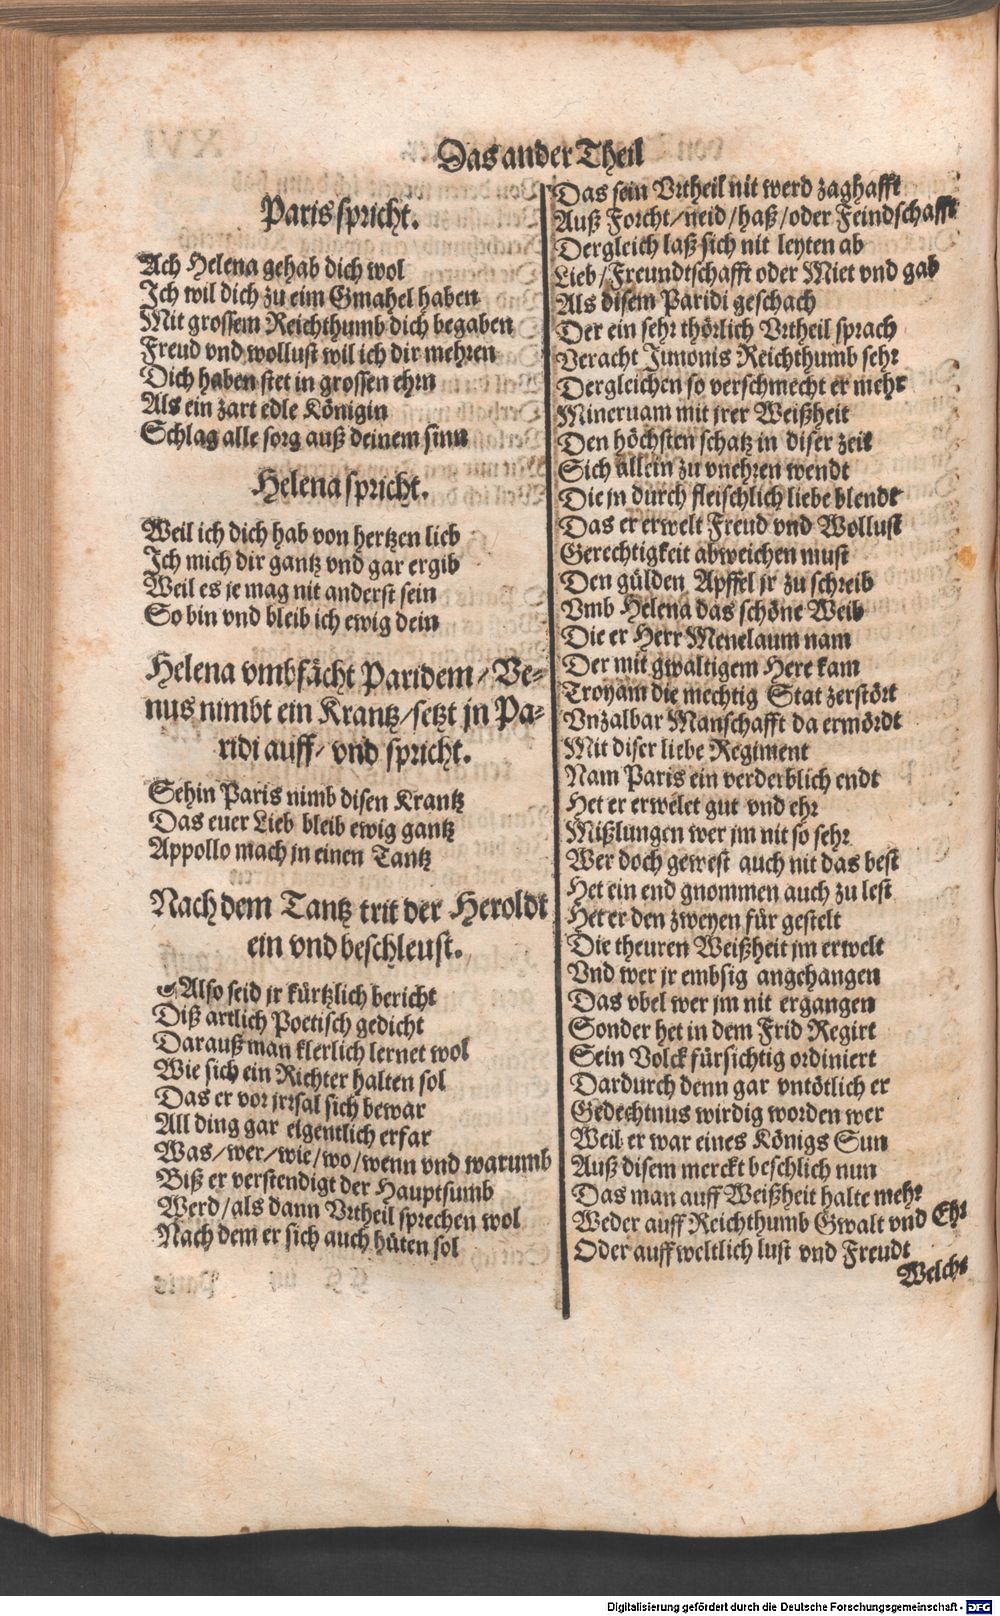 Das ander Theil
Paris spricht.
Ach Helena gehab dich wol
Ich wil dich zu eim Gmahel haben
Mit grossem Reichthumb dich begaben
Freud vnd wollust wil ich dir mehren
Dich haben stet in grossen ehrn
Als ein zart edle Königin
Schlag alle sorg auß deinem sinn
Helena spricht.
Weil ich dich hab von hertzen lieb
Ich mich dir gantz vnd gar ergib
Weil es je mag nit anderst sein
So bin vnd bleib ich ewig dein
Helena vmbfächt Paridem/ Ve-
nus nimbt ein Krantz/ setzt jn Pa-
ridi auff/ vnd spricht.
Sehin Paris nimb disen Krantz
Das euer Lieb bleib ewig gantz
Appollo mach jn einen Tantz
Nach dem Tantz trit der Heroldt
ein vnd beschleust.
Also seid jr kürtzlich bericht
Diß artlich Poetisch gedicht
Darauß man klerlich lernet wol
Wie sich ein Richter halten sol
Das er vor jrrsal sich bewar
All ding gar eigentlich erfar
Was/ wer/ wie/ wo/ wenn vnd warumb
Biß er verstendigt der Hauptsumb
Werd/ als dann Vrtheil sprechen wol
Nach dem er sich auch hüten sol
Das sein Vrtheil nit werd zaghafft
Auß Forcht/ neid/ haß/ oder Feindschafft
Dergleich laß sich nit leyten ab
Lieb/ Freundtschafft oder Miet vnd gab
Als disem Paridi geschach
Der ein sehr thörlich Vrtheil sprach
Veracht Junonis Reichthumb sehr
Dergleichen so verschmecht er mehr
Mineruam mit jrer Weißheit
Den höchsten schatz in diser zeit
Sich allein zu vnehren wendt
Die jn durch fleischlich liebe blendt
Das er erwelt Freud vnd Wollust
Gerechtigkeit abweichen must
Den gülden Apffel jr zu schreib
Vmb Helena das schöne Weib
Die er Herr Menelaum nam
Der mit gwaltigem Here kam
Troyam die mechtig Stat zerstört
Vnzalbar Manschafft da ermördt
Mit diser liebe Regiment
Nam Paris ein verderblich endt
Het er erwelet gut vnd ehr
Mißlungen wer jm nit so sehr
Wer doch gewest auch nit das best
Het ein end gnommen auch zu lest
Het er den zweyen für gestelt
Die theuren Weißheit jm erwelt
Vnd wer jr embsig angehangen
Das vbel wer jm nit ergangen
Sonder het in dem Frid Regirt
Sein Volck fürsichtig ordiniert
Dardurch denn gar vntötlich er
Gedechtnus wirdig worden wer
Weil er war eines Königs Sun
Auß disem merckt beschlich nun
Das man auff Weißheit halte mehr
Weder auff Reichthumb Gwalt vnd Ehr
Oder auff weltlich lust vnd Freudt
Welchs
Digitalisierung gefördert durch die Deutsche Forschungsgemeinschaft - DFG